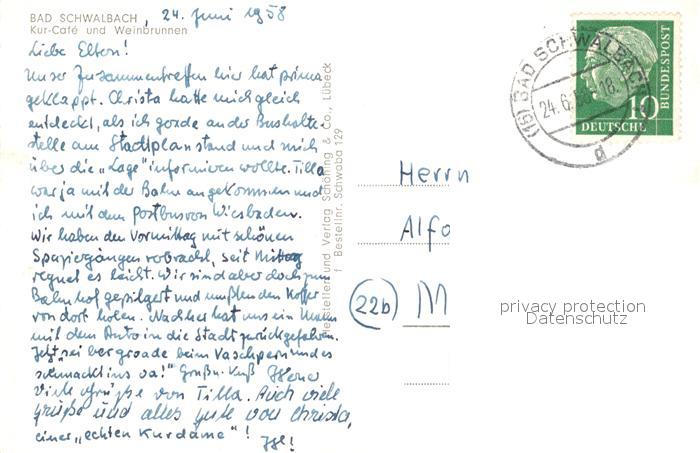 BAD SCHWALBACH, 24. Juni 1958
Kur-Café und Weinbrunnen
Liebe Eltern!
Unser Zusammentreffen hier hat prima
geklappt. Christa hatte mich gleich
entdeckt, als ich gerade an der Bushalte-
stelle am Stadtplan stand und mich
über die „Lage" informieren wollte. Tilla
war ja mit der Bahn angekommen und
ich mit dem Postbus von Wiesbaden.
Wir haben den Vormittag mit schönen
Spaziergängen verbracht, seit Mittag
regnet es leicht. Wir sind aber doch zum
Bahnhof gepilgert und mußten den Koffer
von dort holen. Nachher hat uns ein Mann
mit dem Auto in die Stadt zurückgefahren.
Jetzt beim und es
schmackt ins Gruß u. Kuß
Viele Grüße von Tilla. Auch viele
Grüße und alles gute von Christa,
einer „echten Kurdame"!
Herstellers und Verlag Schöning & Co., Lübeck
Bestellnr. Schwaba 129
(16) BAD SCHWALBACH
24.6.58 18
d
10
DEUTSCHE
BUNDESPOST
Herrn
Alfo
(22b) M
privacy protection
Datenschutz